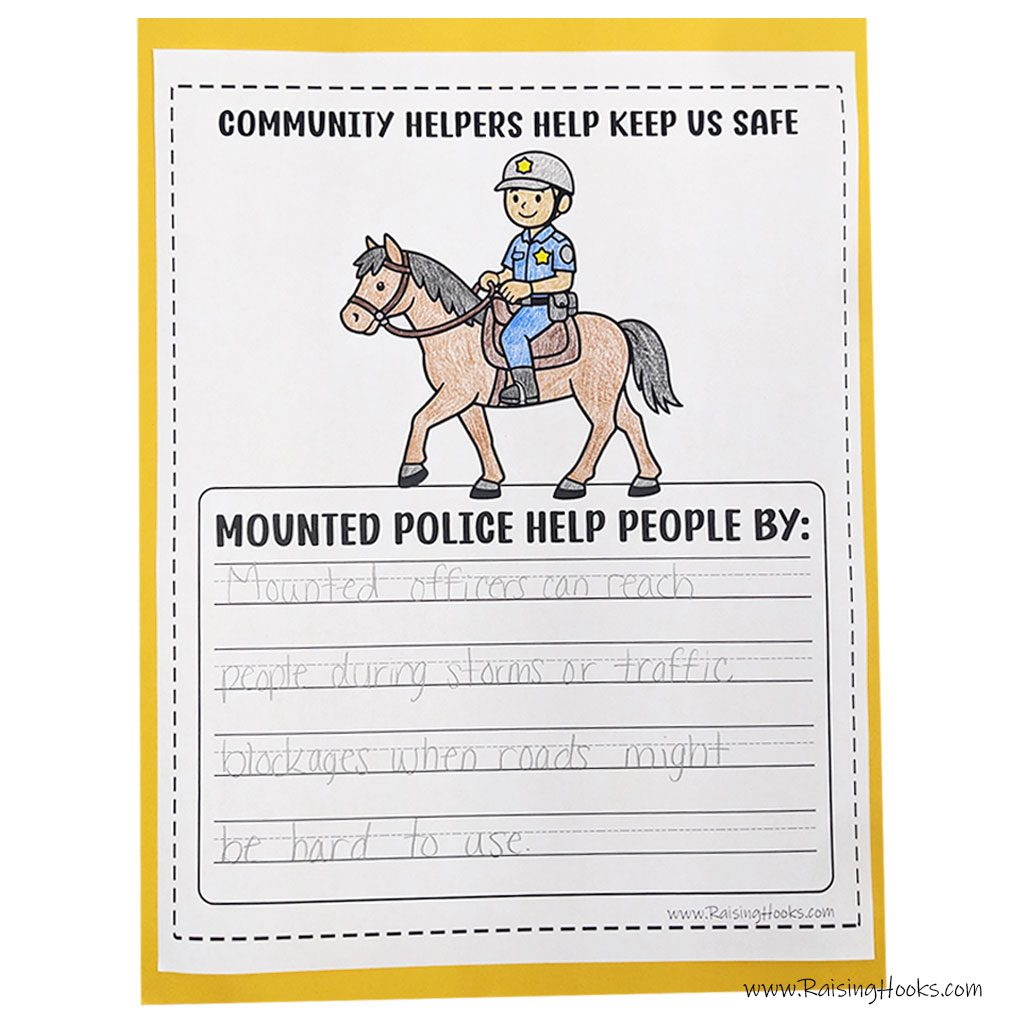 COMMUNITY HELPERS HELP KEEP US SAFE
MOUNTED POLICE HELP PEOPLE BY:
Mounted officers can reach
people during storms or traffic
blockages when roads might
be hard to use.
www.RaisingHooks.com
www.RaisingHooks.com